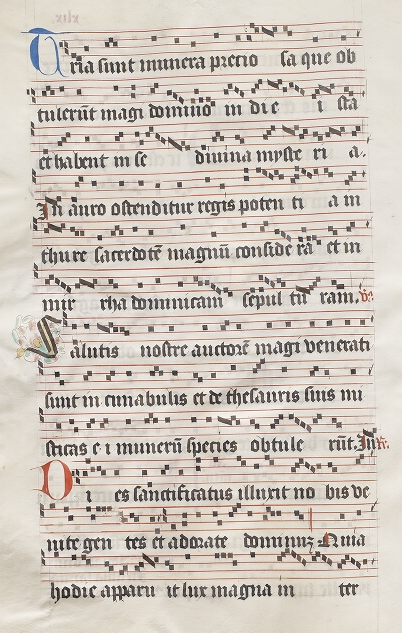 Tria sunt munera precio sa que ob
tulerũt magi domino in di e i sta
et habent in se divina myste ri a.
In auro ostenditur regis poten ti a in
thure sacerdotẽ magnũ conside ra et in
mir rha dominicam sepul tu ram. ℣.
Salutis nostre auctorẽ magi venerati
sunt in cunabulis et de thesauris suis mi
sticas e i munerũ species obtule rũt. In
Di es sanctificatus illuxit no bis ve
nite gen tes et adorate dominuz Quia
hodie apparu it lux magna in ter